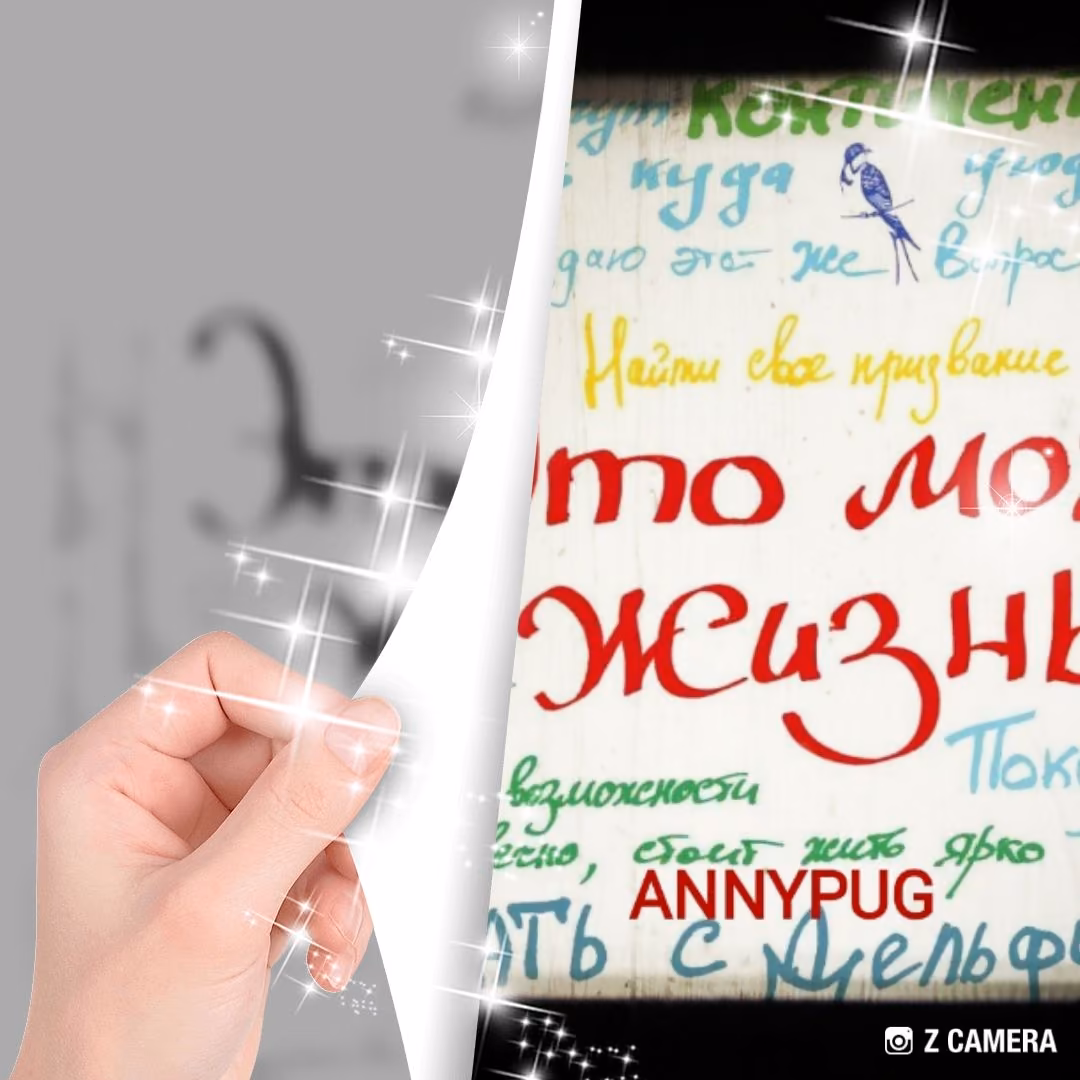 Континент
куда
даю этот же Вопрос
Найти своё призвание
Это моя
Жизнь
возможности
вечно, стоит жить ярко
ANNYPUG
АТЬ с Дельф
Z CAMERA